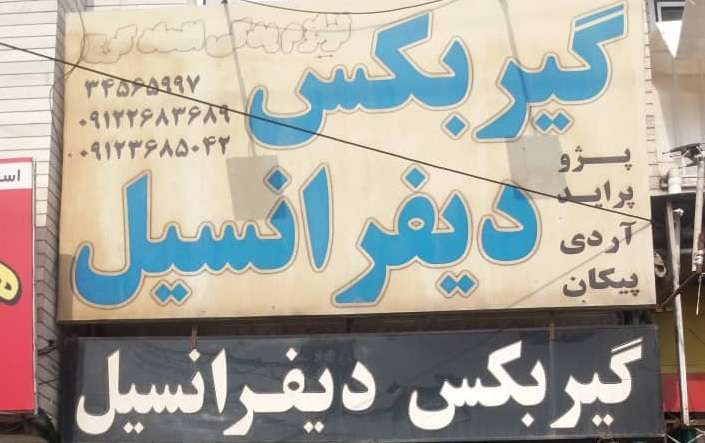 گیربکس
دیفرانسیل
۳۴۵۶۵۹۹۷
۰۹۱۲۲۶۸۳۶۸۹
۰۹۱۲۳۶۸۵۰۴۲
پژو
پراید
آردی
پیکان
گیربکس دیفرانسیل